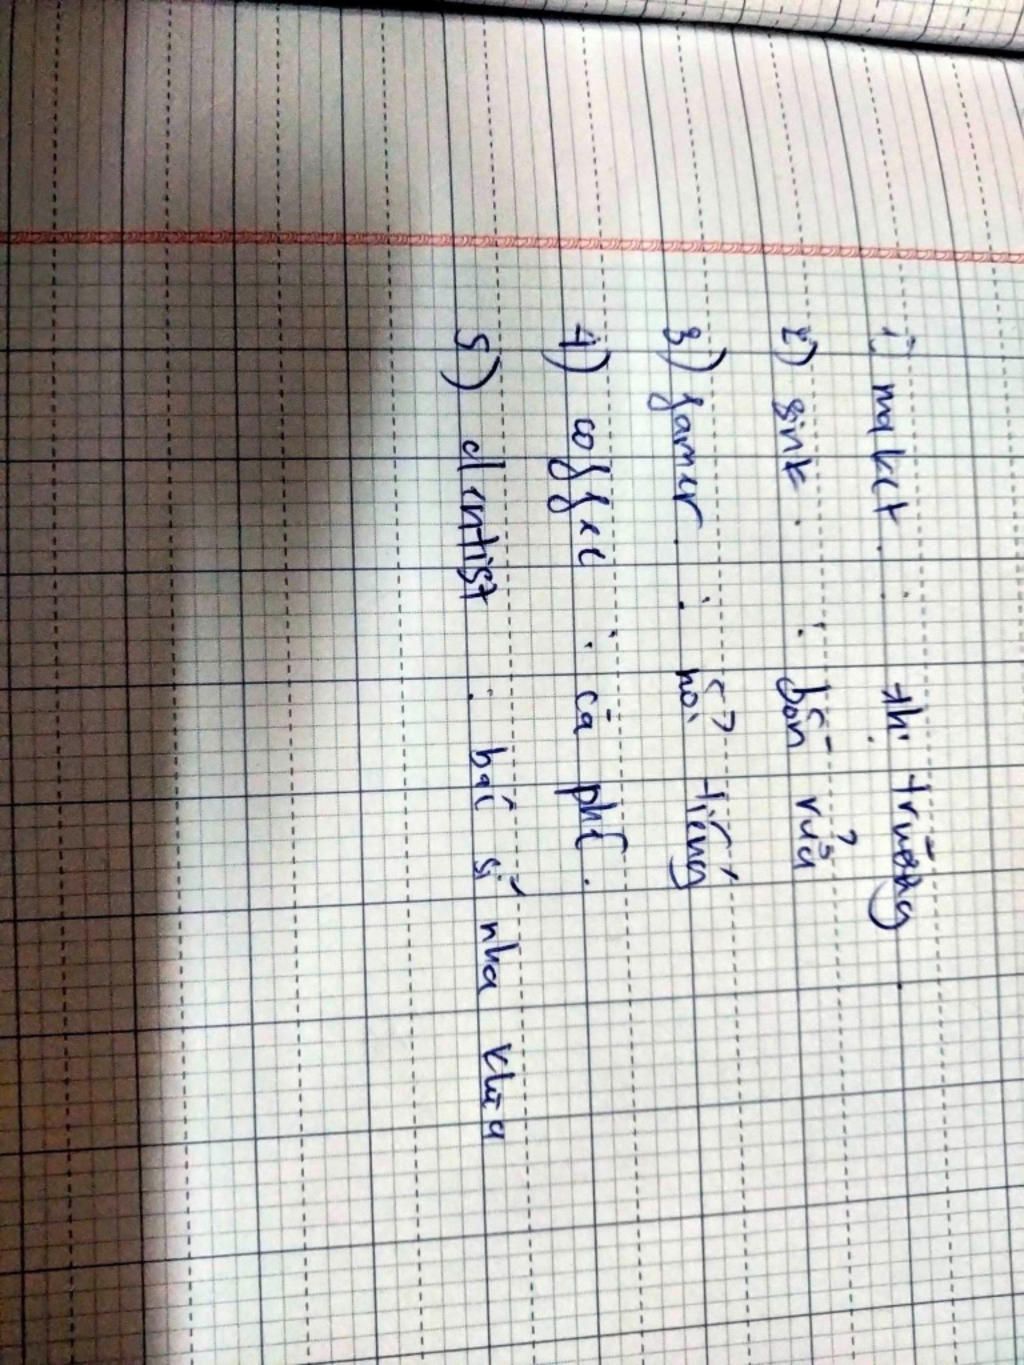 1) maket : thị trường.
2) sink : bồn rửa
3) famer : nổi tiếng
4) coffee : cà phê.
5) dentist : bác sĩ nha khoa